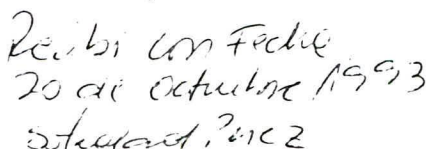 Recibi con Fecha
20 de octubre /1993